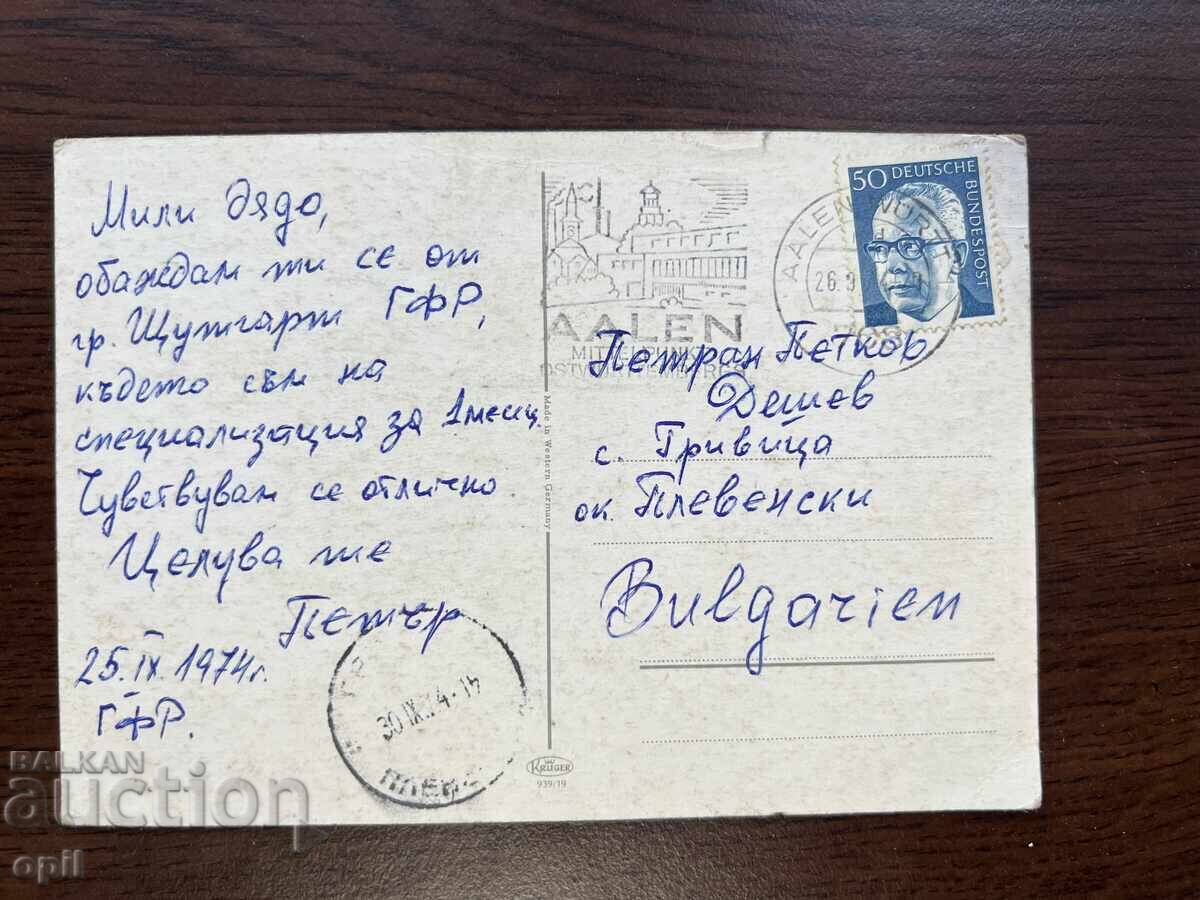 Мили дядо,
обаждам ти се от
гр. Щутгарт ГФР,
където съм на
специализация за 1 месец.
Чувствувам се отлично.
Целува те
Петър
25.IX.1974г.
ГФР.
50 DEUTSCHE BUNDESPOST
AALEN
MITTELPUNKT
OSTWÜRTTEMBERGS
AALEN WÜRTT
26.9
Made in Western Germany
Петран Петков
Дешев
с. Гривица
ок. Плевенски
Bulgarien
30.IX.74-15
ПЛЕВЕ
KRÜGER
939/19
BALKAN
auction
opil